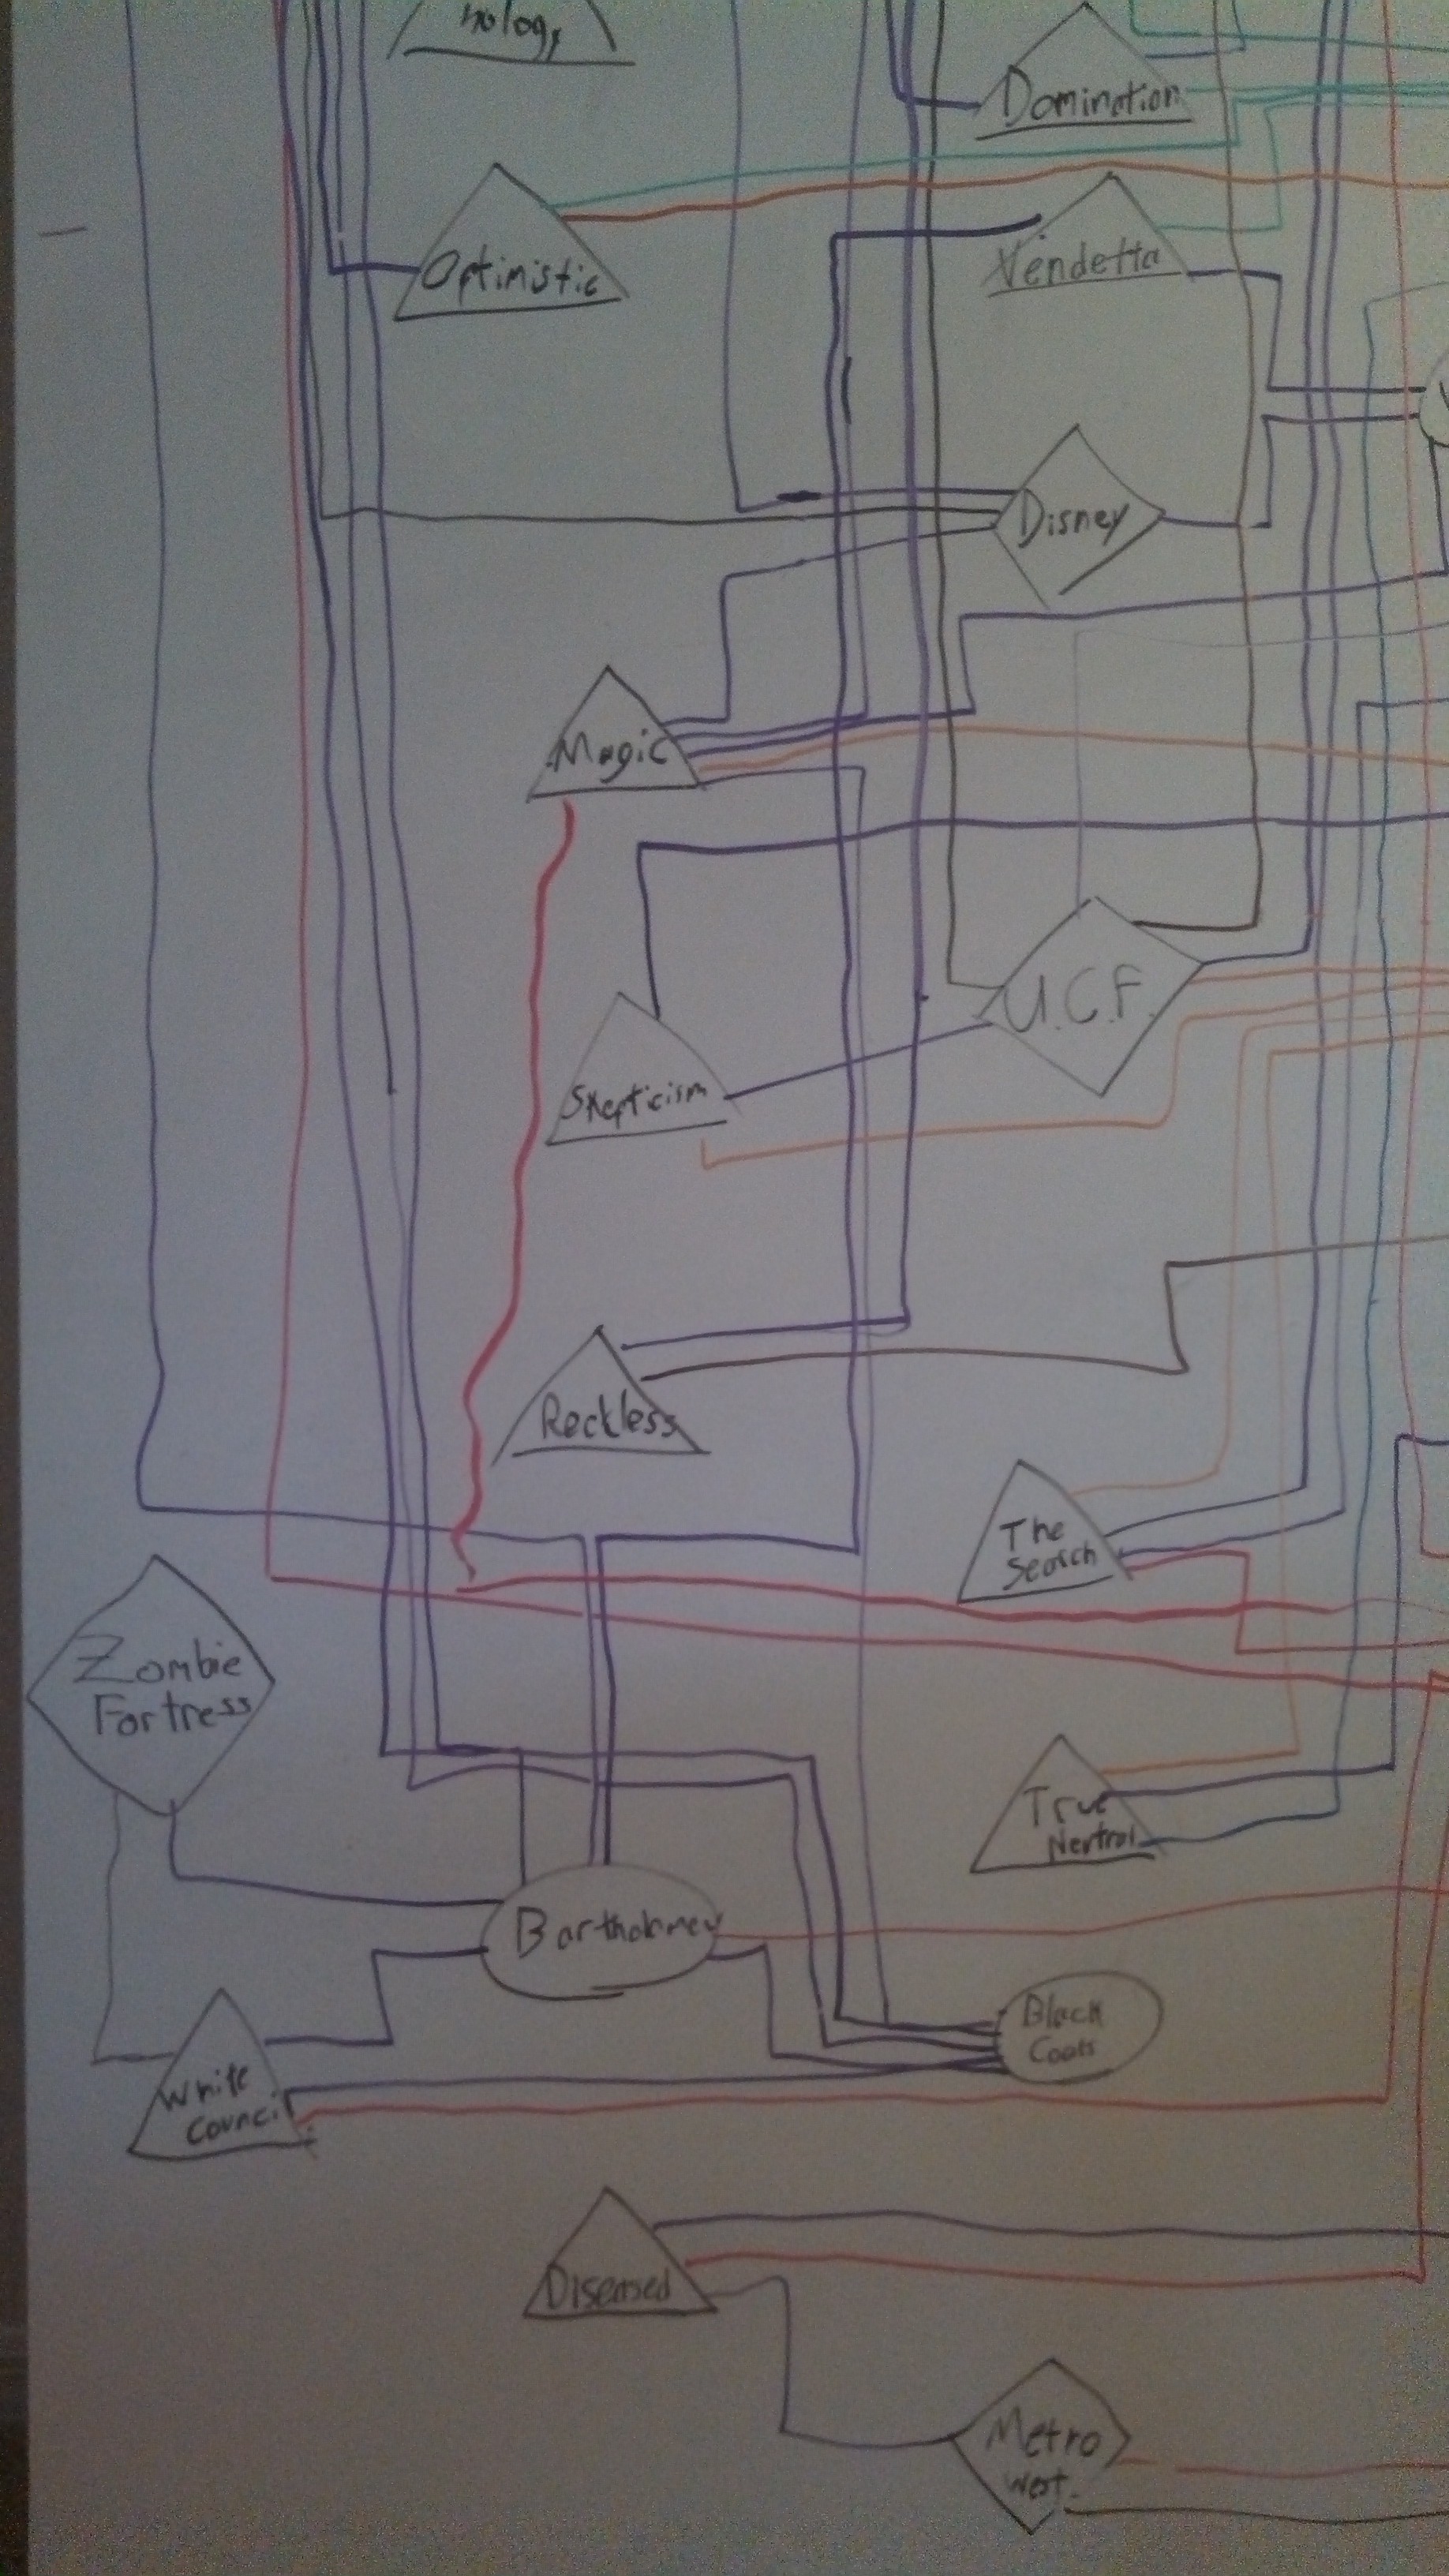 nology
Domination
Optimistic
Vendetta
Disney
Magic
U.C.F.
Skepticism
Reckless
The
Search
Zombie
Fortress
True
Nertral
Bartholomew
Black
Coats
White
Council
Diseased
Metro
West.